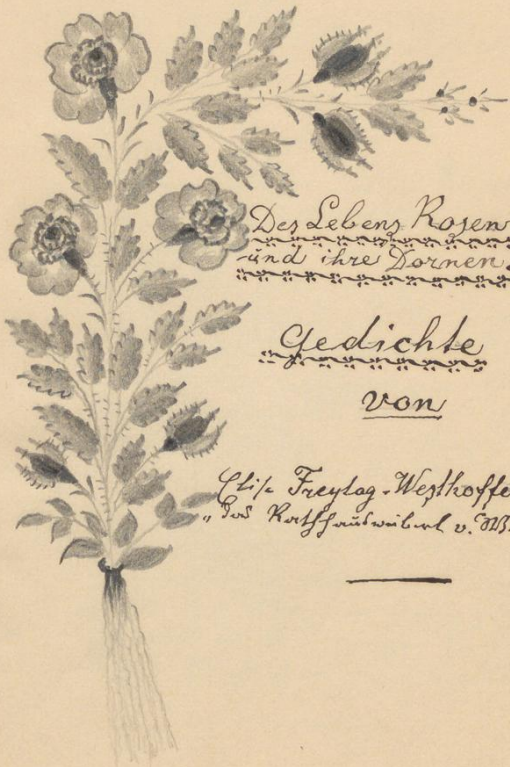 Des Lebens Rosen
und ihre Dornen.
Gedichte
von
Elise Freytag-Westhoffe
„das Rathhausweiberl v. W.